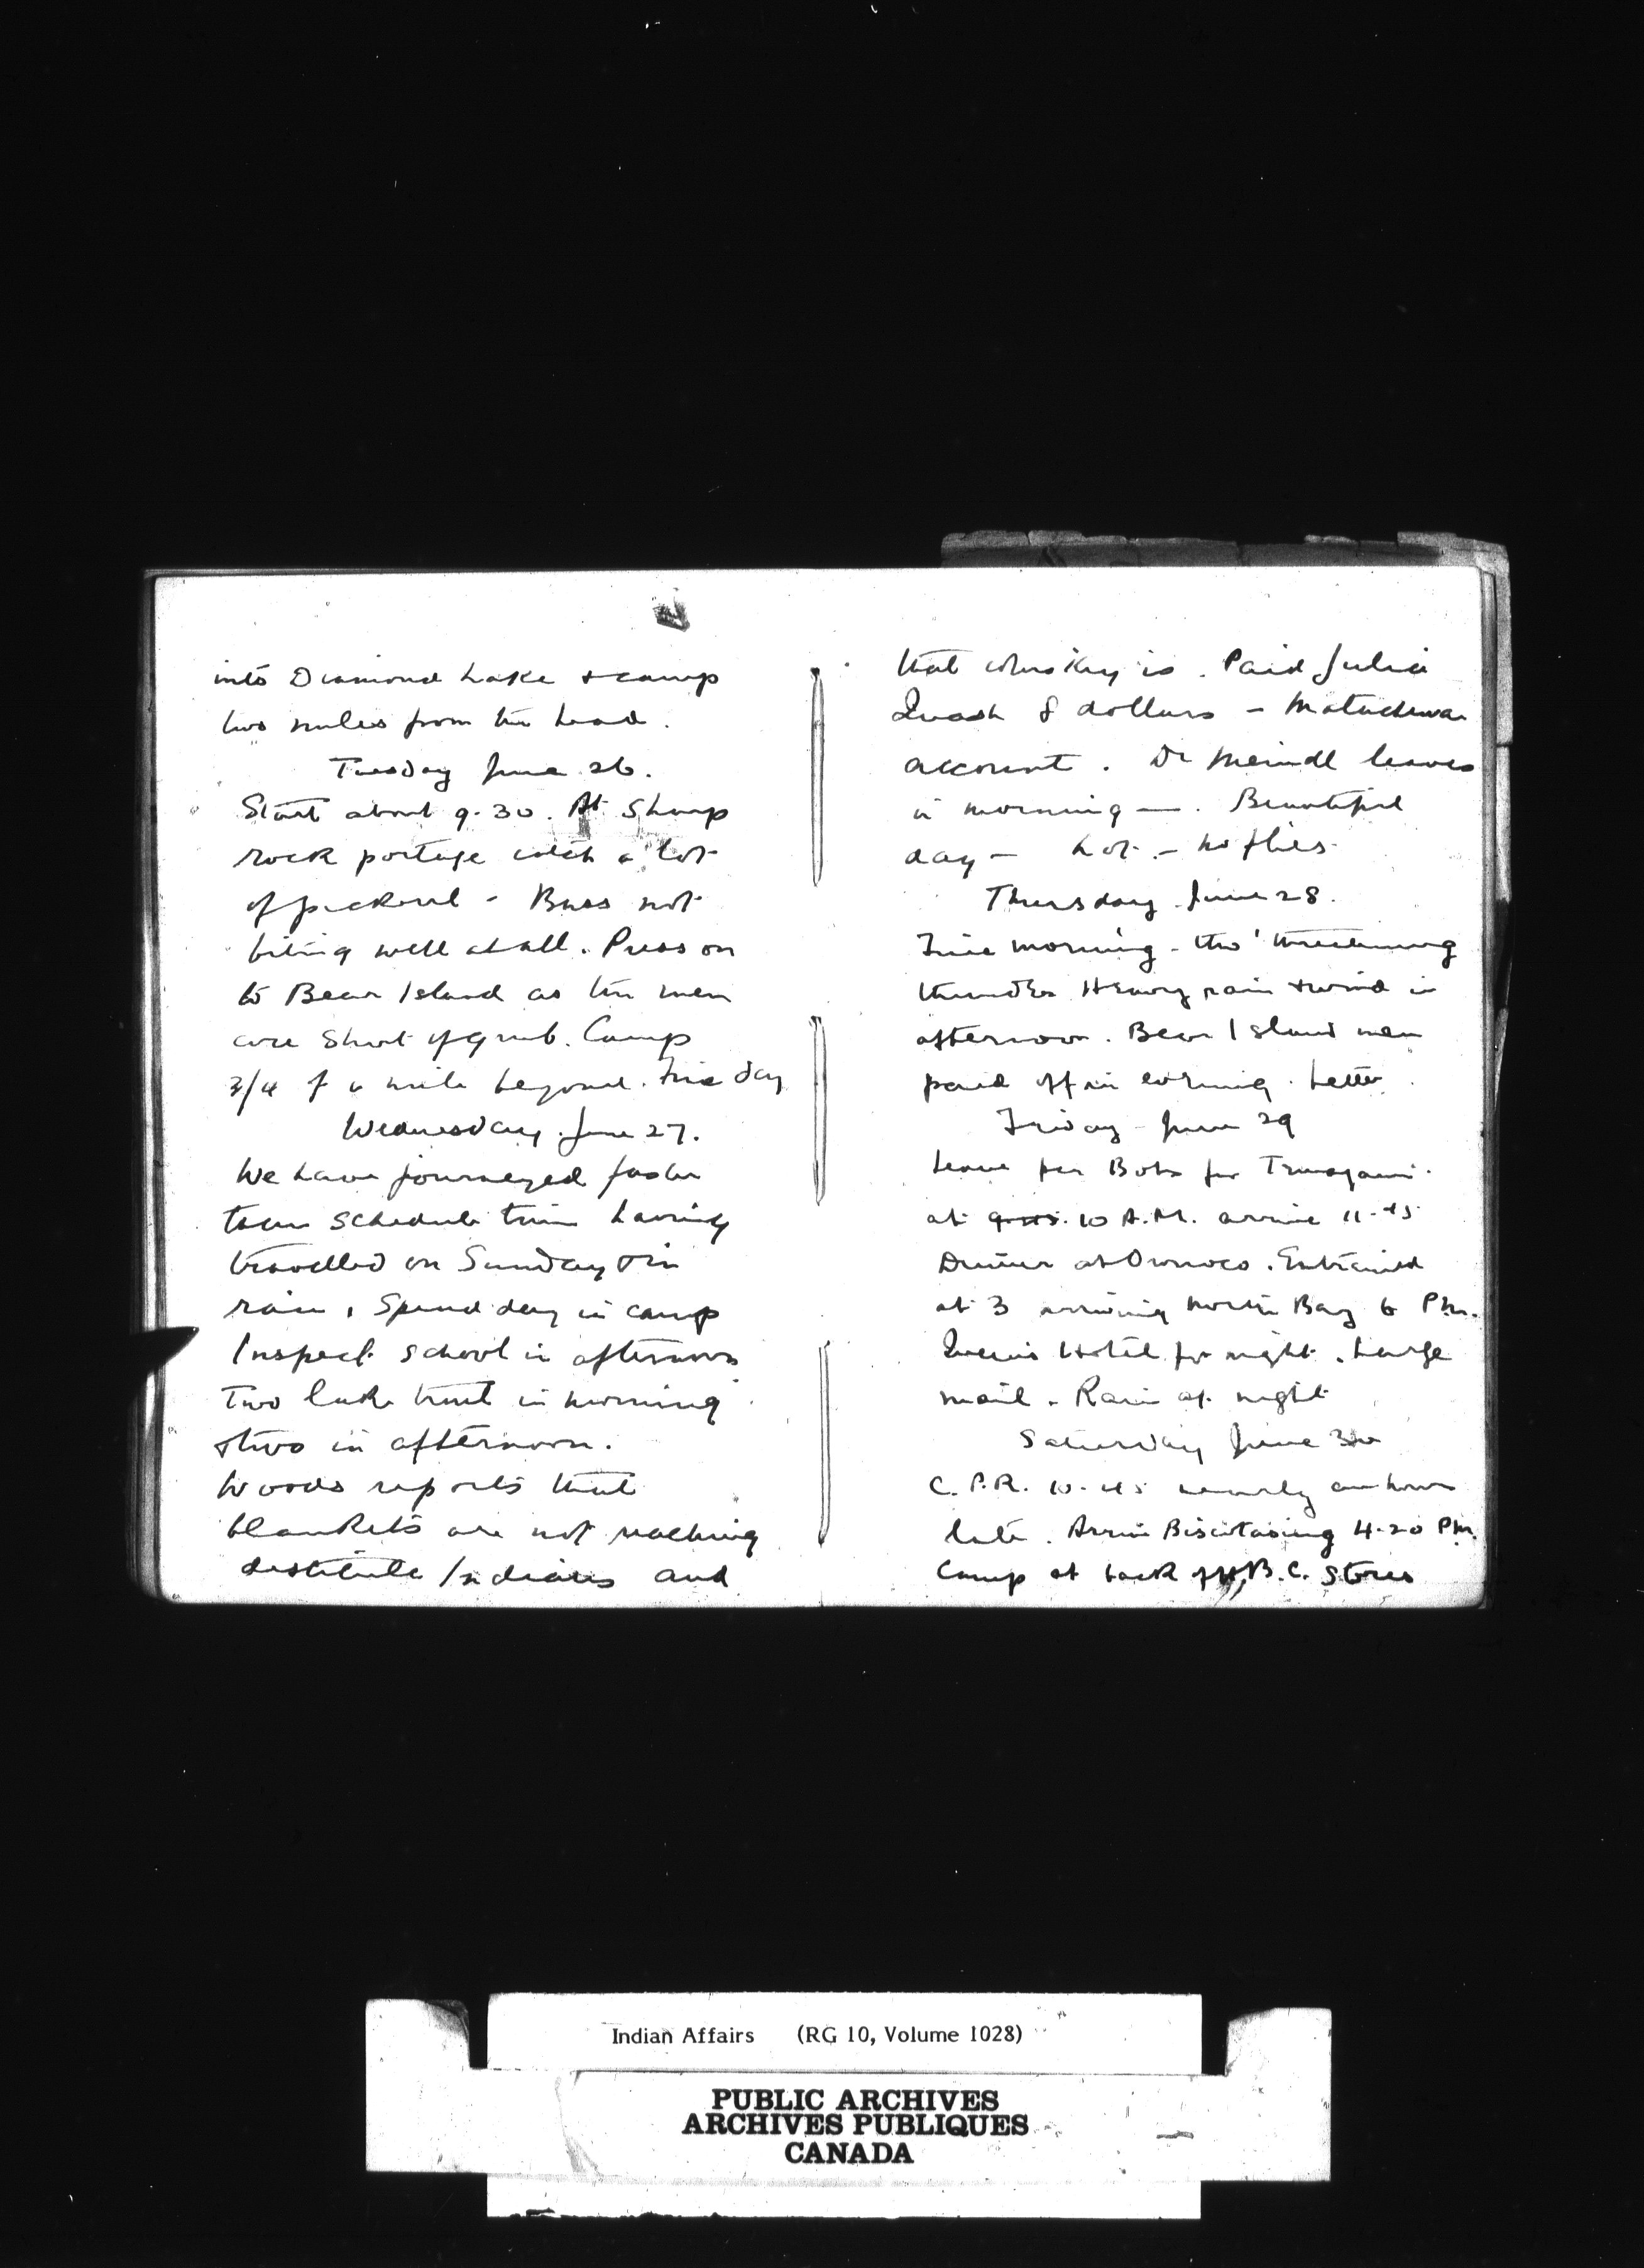 into Diamond Lake & camp
two miles from the head.
Tuesday June 26.
Start about 9.30. At Sharp
rock portage catch a lot
of pickerel - Bass not
biting well at all. Press on
to Bear Island as the men
are short of grub. Camp
3/4 of a mile beyond. Fine day
Wednesday. June 27.
We have journeyed faster
than schedule time having
travelled on Sunday & in
rain. Spend day in camp
Inspect school in afternoon
Two lake trout in morning
& two in afternoon.
Woods reports that
blankets are not reaching
destitute Indians and
that whiskey is. Paid Julia
Quash 8 dollars - Matachewan
account. Dr Meindl leaves
in morning —. Beautiful
day — hot. — no flies.
Thursday. June 28.
Fine morning - tho' threatening
thunder. Heavy rain & wind in
afternoon. Bear Island men
paid off in evening. Letter.
Friday - June 29
Leave per Boat for Temagami.
at 9.45. 10 A.M. arrive 11-45
Dinner at Ronnoco. Entrained
at 3 arriving North Bay 6 P.M.
Queens Hotel for night. Large
mail. Rain at night
Saturday June 30
C.P.R. 10.45 nearly an hour
late. Arrive Biscotasing 4.20 P.M.
Camp at back of H.B.C. Stores
Indian Affairs (RG 10, Volume 1028)
PUBLIC ARCHIVES
ARCHIVES PUBLIQUES
CANADA